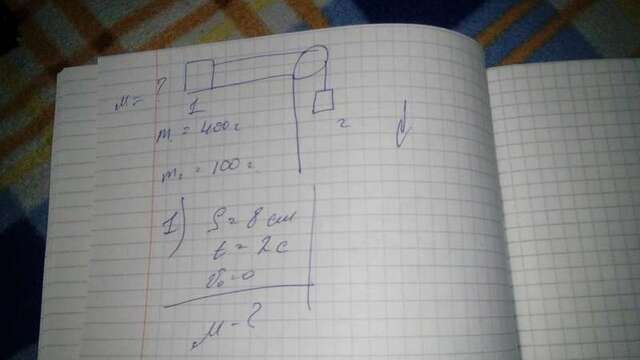 M = ?
1
m₁ = 400 г
2
m₂ = 100 г
1) S = 8 см
t = 2 с
v₀ = 0
M - ?